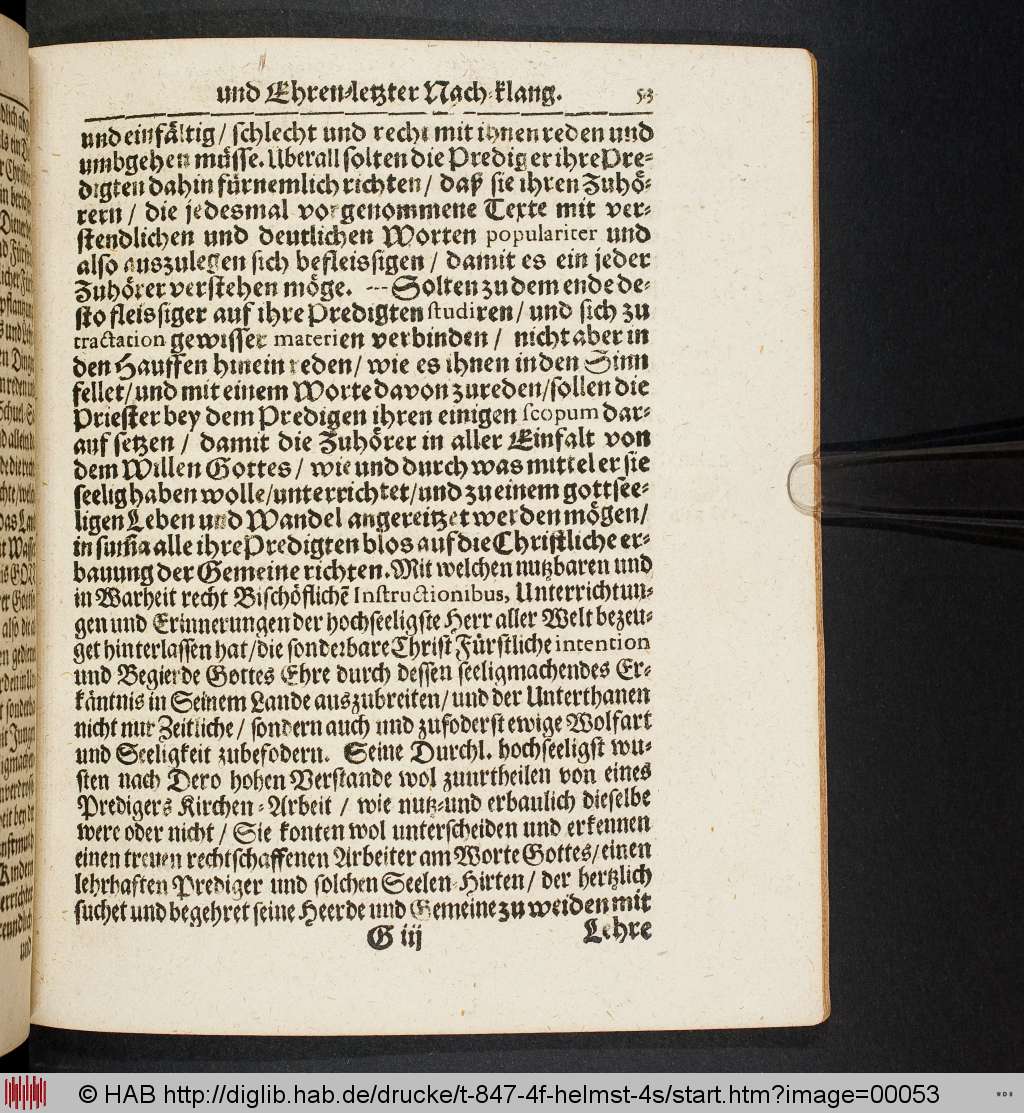 und Ehren-letzter Nach-klang. 53
und einfältig / schlecht und recht mit ihnen reden und
umbgehen müsse. Uberall solten die Prediger ihre Pre-
digten dahin fürnemlich richten / daß sie ihren Zuhö-
rern / die jedesmal vorgenommene Texte mit ver-
stendlichen und deutlichen Worten populariter und
also auszulegen sich befleissigen / damit es ein jeder
Zuhörer verstehen möge. --- Solten zu dem ende de-
sto fleissiger auf ihre Predigten studiren / und sich zu
tractation gewisser materien verbinden / nicht aber in
den Hauffen hinein reden / wie es ihnen in den Sinn
fellet / und mit einem Worte davon zureden / sollen die
Priester bey dem Predigen ihren einigen scopum dar-
auf setzen / damit die Zuhörer in aller Einfalt von
dem Willen Gottes / wie und durch was mittel er sie
seelig haben wolle / unterrichtet / und zu einem gottsee-
ligen Leben und Wandel angereitzet werden mögen /
in sum̃a alle ihre Predigten blos auf die Christliche er-
bauung der Gemeine richten. Mit welchen nutzbaren und
in Warheit recht Bischöflichẽ Instructionibus, Unterrichtun-
gen und Erinnerungen der hochseeligste Herr aller Welt bezeu-
get hinterlassen hat / die sonderbare Christ Fürstliche intention
und Begierde Gottes Ehre durch dessen seeligmachendes Er-
käntnis in Seinem Lande auszubreiten / und der Unterthanen
nicht nur Zeitliche / sondern auch und zufoderst ewige Wolfart
und Seeligkeit zubefodern. Seine Durchl. hochseeligst wu-
sten nach Dero hohen Verstande wol zuurtheilen von eines
Predigers Kirchen-Arbeit / wie nutz-und erbaulich dieselbe
were oder nicht / Sie konten wol unterscheiden und erkennen
einen treuen rechtschaffenen Arbeiter am Worte Gottes / einen
lehrhaften Prediger und solchen Seelen-Hirten / der hertzlich
suchet und begehret seine Heerde und Gemeine zu weiden mit
G iij Lehre
© HAB http://diglib.hab.de/drucke/t-847-4f-helmst-4s/start.htm?image=00053